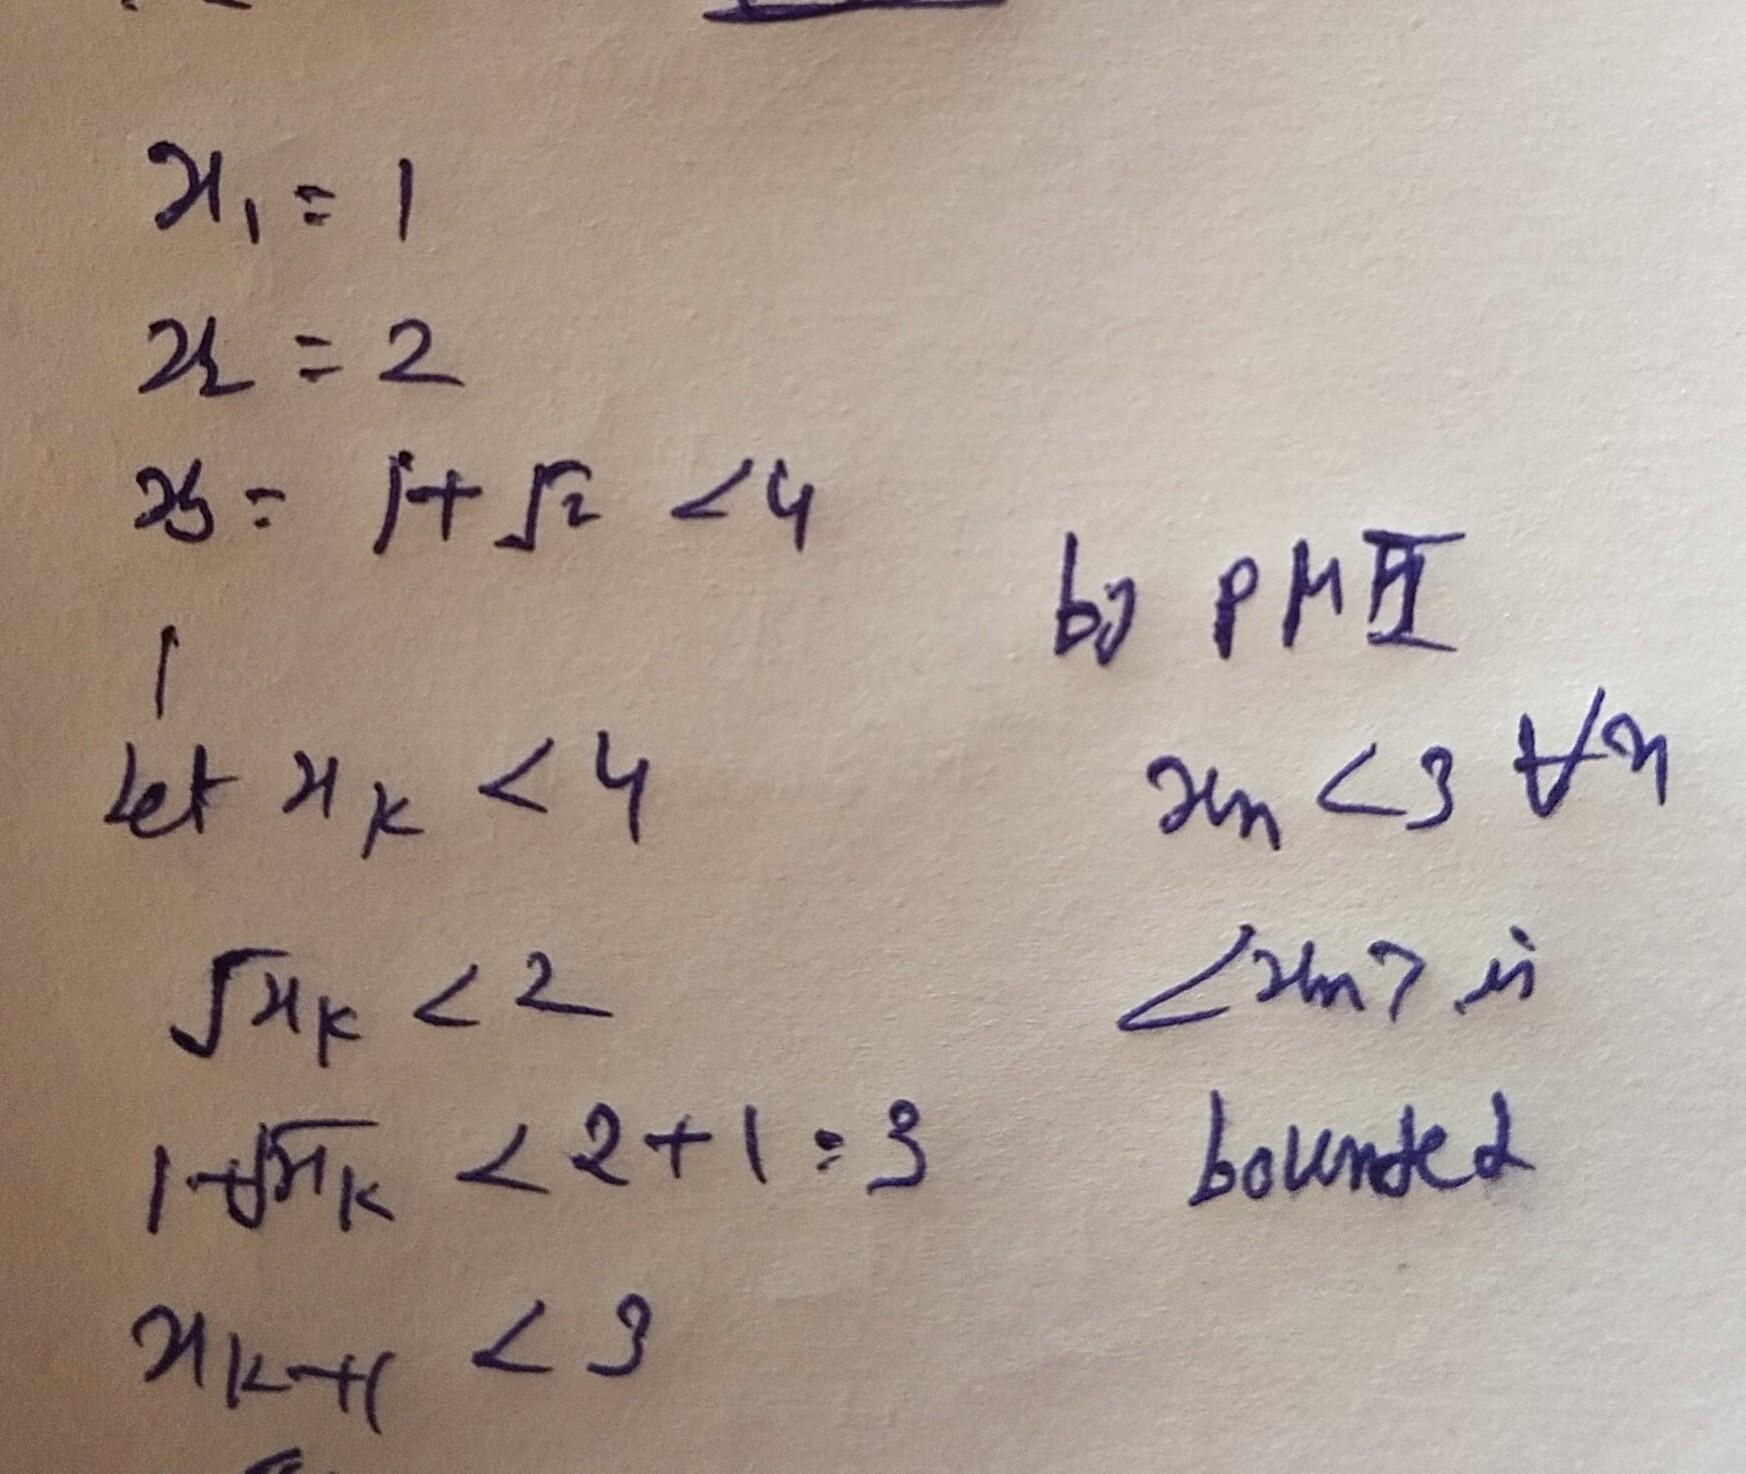 x₁ = 1
x₂ = 2
x₃ = 1+√2 <4
let xₖ < 4
√xₖ < 2
1+√xₖ < 2+1=3
xₖ₊₁ < 3
by PMI
xₙ <3 ∀n
<xₙ> is
bounded